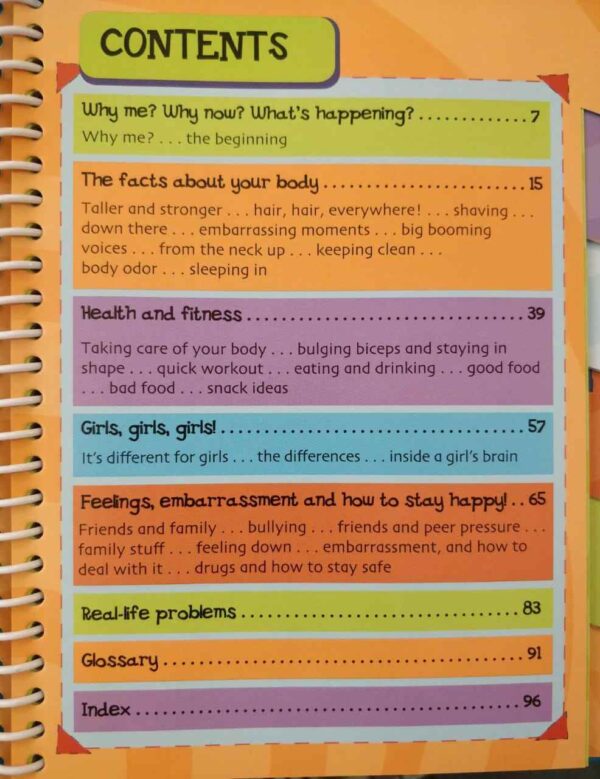 CONTENTS
Why me? Why now? What's happening? ............. 7
Why me? . . . the beginning
The facts about your body ........................ 15
Taller and stronger . . . hair, hair, everywhere! . . . shaving . . .
down there . . . embarrassing moments . . . big booming
voices . . . from the neck up . . . keeping clean . . .
body odor . . . sleeping in
Health and fitness ................................ 39
Taking care of your body . . . bulging biceps and staying in
shape . . . quick workout . . . eating and drinking . . . good food
. . . bad food . . . snack ideas
Girls, girls, girls! .................................. 57
It's different for girls . . . the differences . . . inside a girl's brain
Feelings, embarrassment and how to stay happy! .. 65
Friends and family . . . bullying . . . friends and peer pressure . . .
family stuff . . . feeling down . . . embarrassment, and how to
deal with it . . . drugs and how to stay safe
Real-life problems ................................ 83
Glossary .......................................... 91
Index ............................................. 96